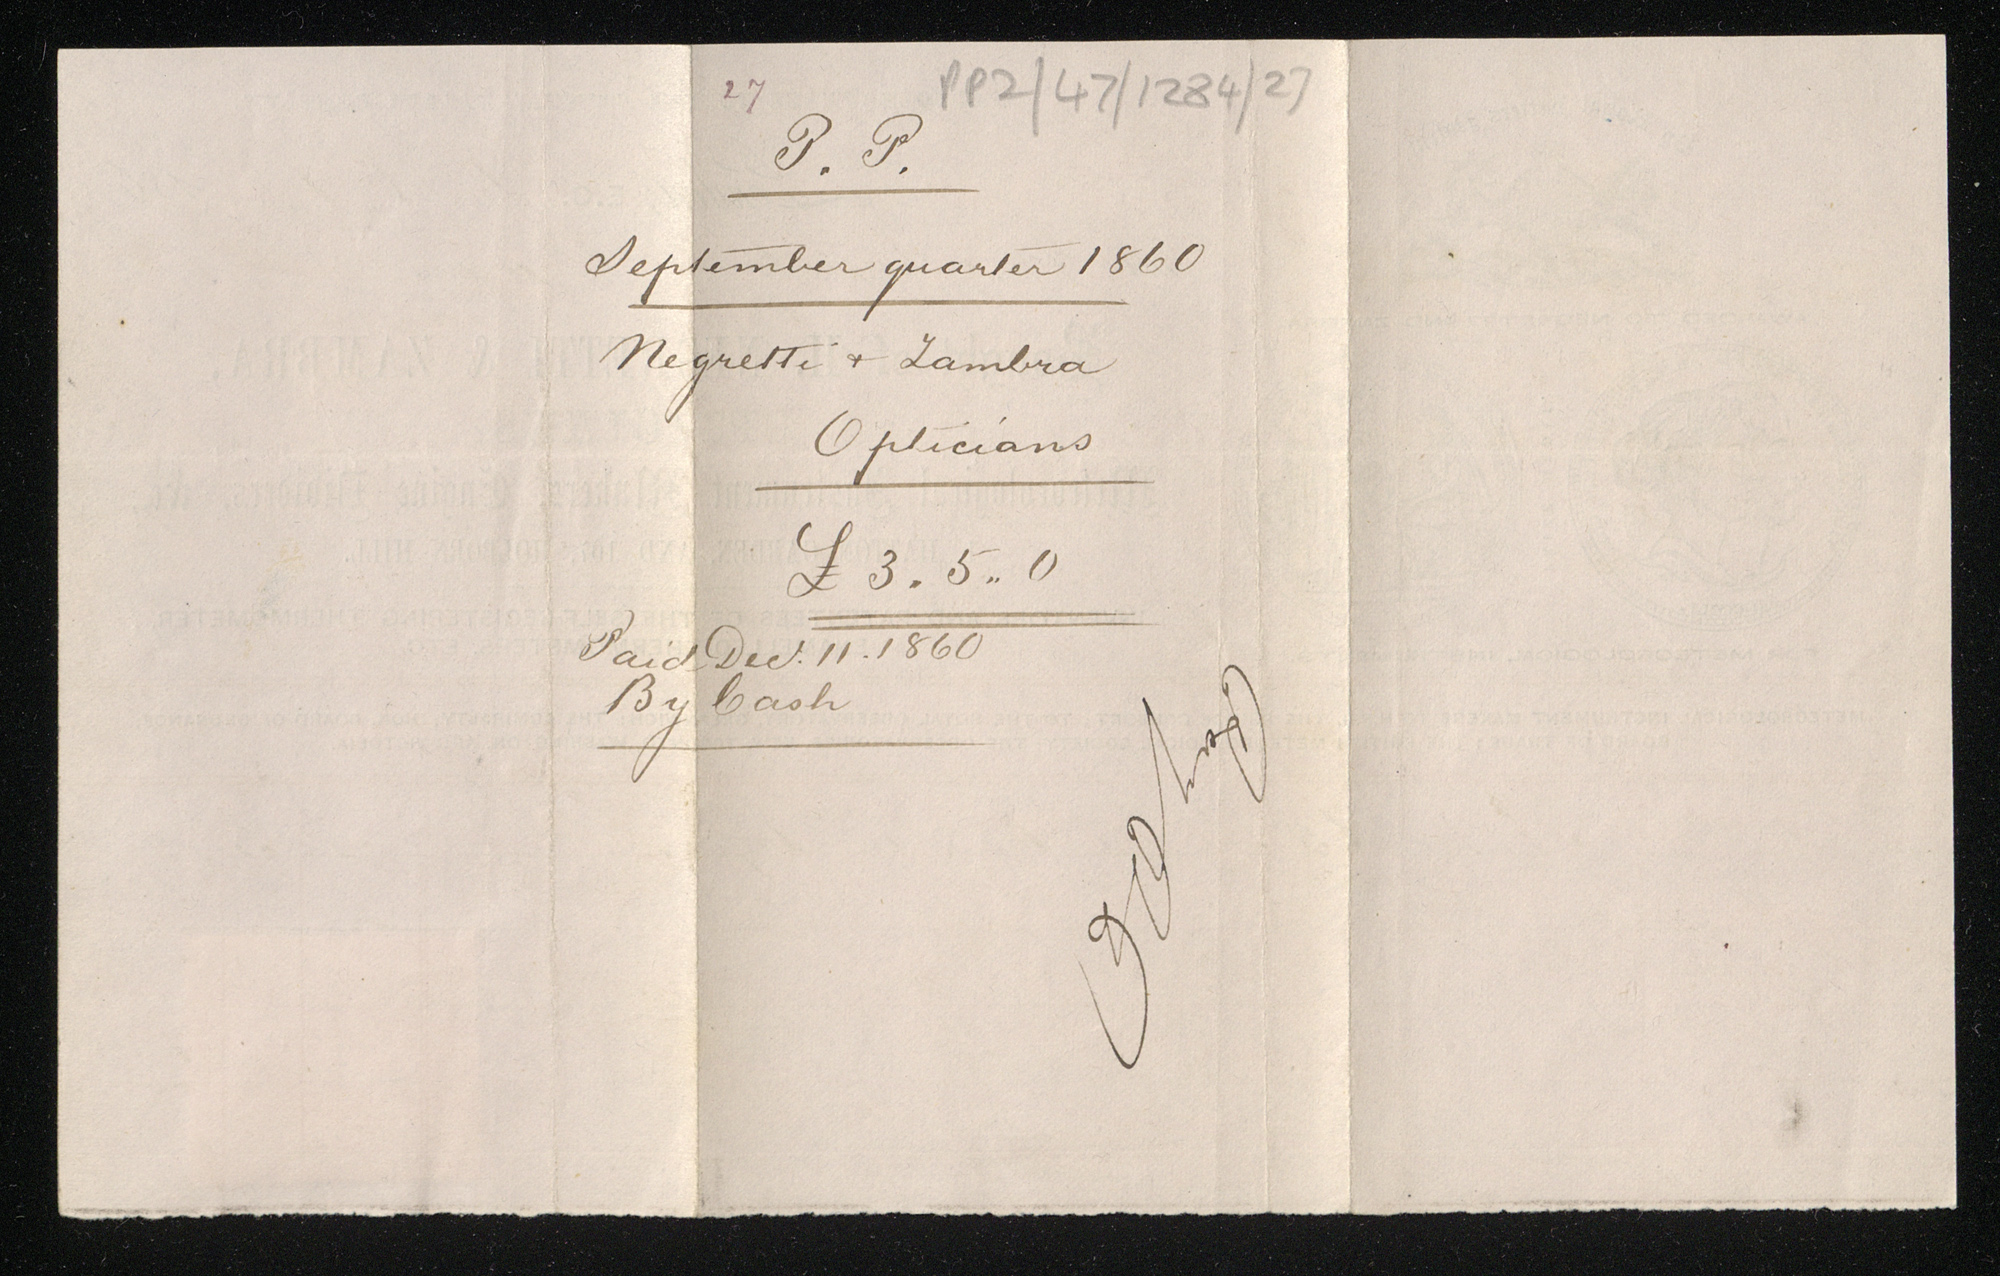 27 PP2/47/1284/27
P. P.
September quarter 1860
Negretti + Zambra
Opticians
£ 3. 5.. 0
Paid Dec. 11. 1860
By Cash